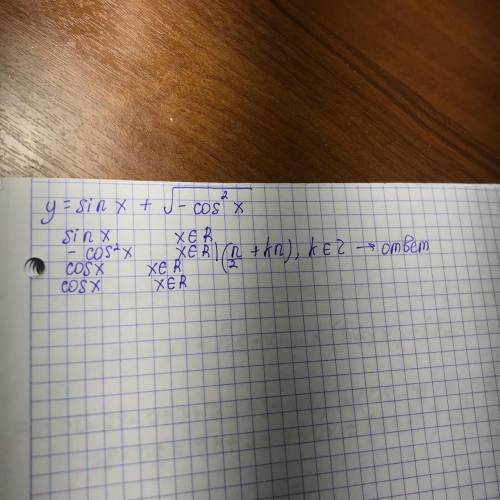 y = sin x + √(- cos² x)
sin x x∈R
- cos²x x∈R \ (π/2 + kπ), k∈Z → ответ
cos x x∈R
cos x x∈R